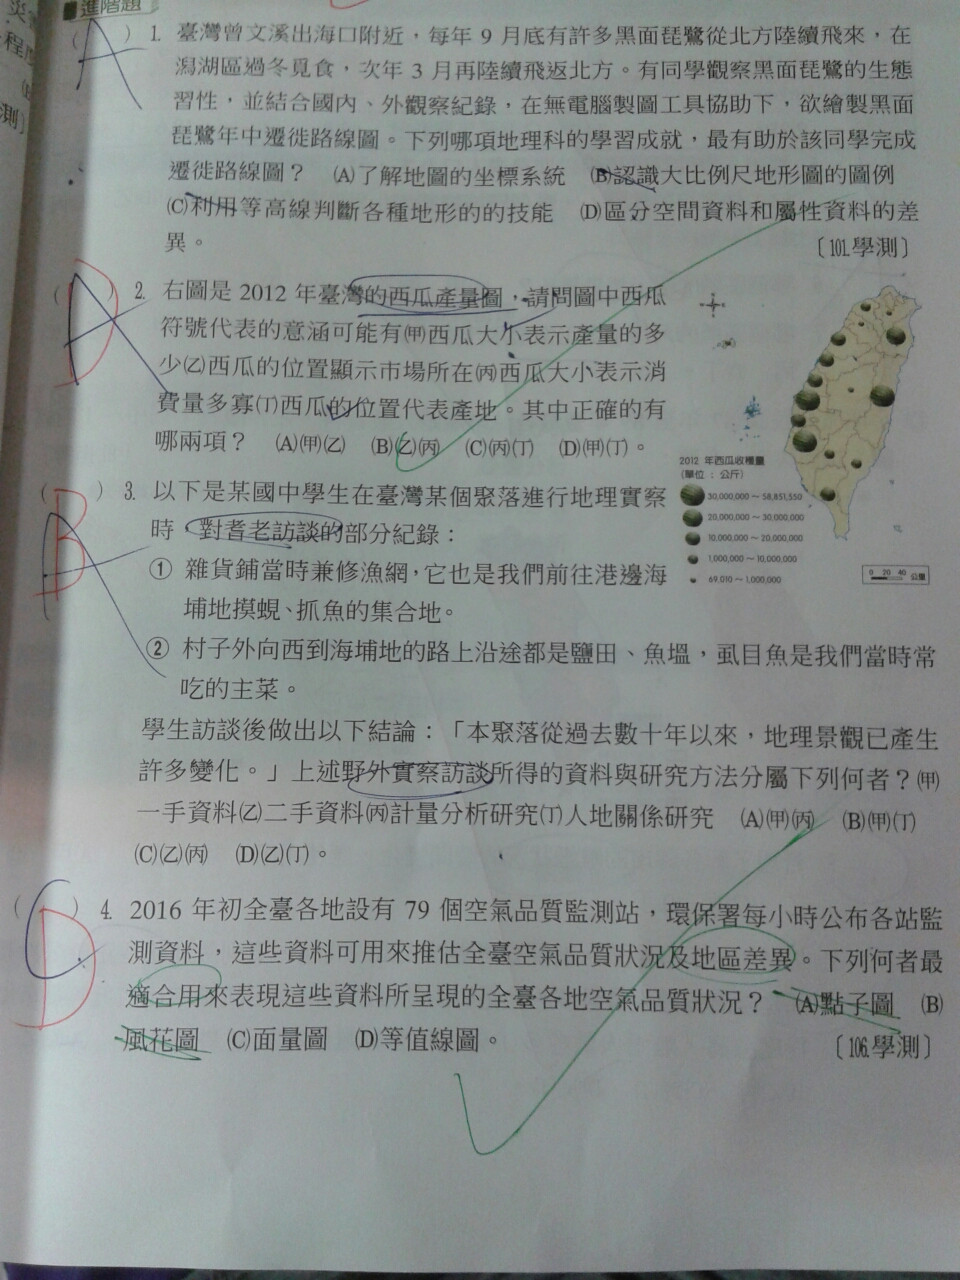 進階題
(A) 1. 臺灣曾文溪出海口附近，每年 9 月底有許多黑面琵鷺從北方陸續飛來，在
潟湖區過冬覓食，次年 3 月再陸續飛返北方。有同學觀察黑面琵鷺的生態
習性，並結合國內、外觀察紀錄，在無電腦製圖工具協助下，欲繪製黑面
琵鷺年中遷徙路線圖。下列哪項地理科的學習成就，最有助於該同學完成
遷徙路線圖？　(A)了解地圖的坐標系統　(B)認識大比例尺地形圖的圖例
(C)利用等高線判斷各種地形的的技能　(D)區分空間資料和屬性資料的差
異。〔101.學測〕
(D) 2. 右圖是 2012 年臺灣的西瓜產量圖，請問圖中西瓜
符號代表的意涵可能有(甲)西瓜大小表示產量的多
少(乙)西瓜的位置顯示市場所在(丙)西瓜大小表示消
費量多寡(丁)西瓜的位置代表產地。其中正確的有
哪兩項？　(A)(甲)(乙)　(B)(乙)(丙)　(C)(丙)(丁)　(D)(甲)(丁)。
2012 年西瓜收穫量
(單位：公斤)
30,000,000～58,851,550
20,000,000～30,000,000
10,000,000～20,000,000
1,000,000～10,000,000
69,010～1,000,000
0 20 40 公里
(B) 3. 以下是某國中學生在臺灣某個聚落進行地理實察
時，對耆老訪談的部分紀錄：
① 雜貨鋪當時兼修漁網，它也是我們前往港邊海
埔地摸蜆、抓魚的集合地。
② 村子外向西到海埔地的路上沿途都是鹽田、魚塭，虱目魚是我們當時常
吃的主菜。
學生訪談後做出以下結論：「本聚落從過去數十年以來，地理景觀已產生
許多變化。」上述野外實察訪談所得的資料與研究方法分屬下列何者？(甲)
一手資料(乙)二手資料(丙)計量分析研究(丁)人地關係研究　(A)(甲)(丙)　(B)(甲)(丁)
(C)(乙)(丙)　(D)(乙)(丁)。
(D) 4. 2016 年初全臺各地設有 79 個空氣品質監測站，環保署每小時公布各站監
測資料，這些資料可用來推估全臺空氣品質狀況及地區差異。下列何者最
適合用來表現這些資料所呈現的全臺各地空氣品質狀況？　(A)點子圖　(B)
風花圖　(C)面量圖　(D)等值線圖。〔106.學測〕